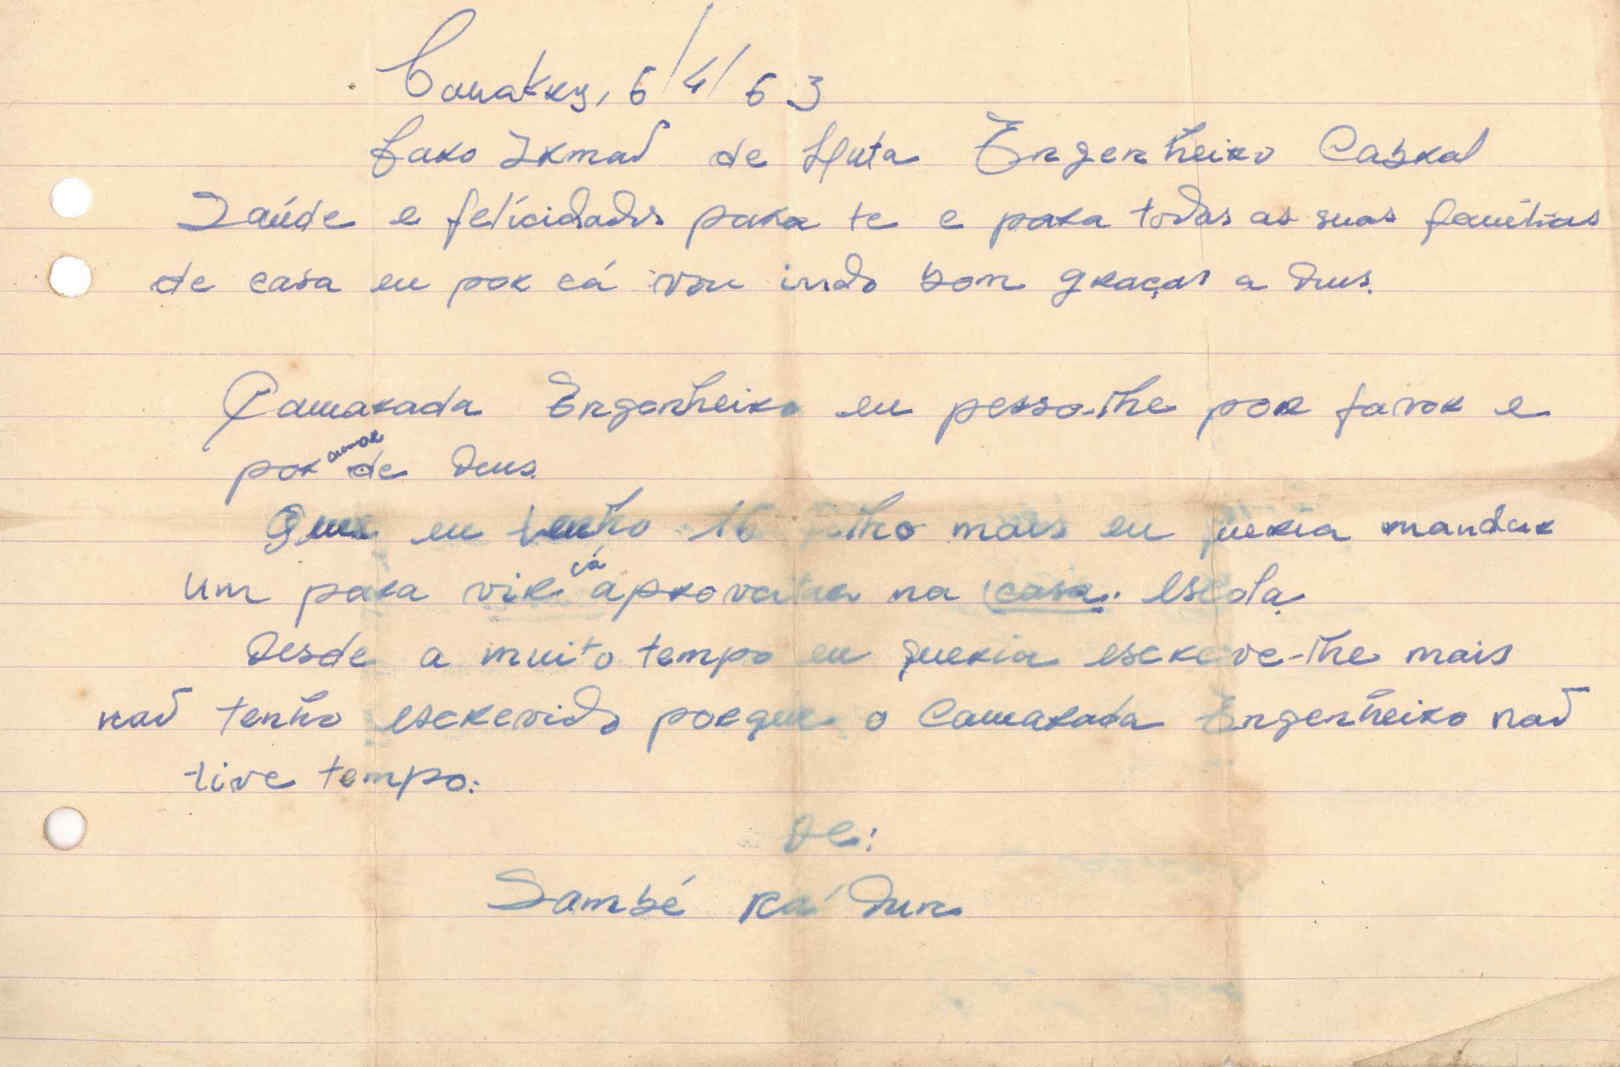 Conakry, 6/4/63
Caro Irmaõ de Luta Engenheiro Cabral
Saúde e felicidades para te e para todas as suas familias
de casa eu por cá vou indo bom graças a Deus.
Camarada Engenheiro eu pesso-lhe por favor e
por amor de Deus.
Que eu tenho 16 filho mais eu queria mandar
um para vir cá aprovaitar na casa. escola.
Desde a muito tempo eu queria escreve-lhe mais
naõ tenho escrevido porque o Camarada Engenheiro naõ
tive tempo.
De:
Sambé